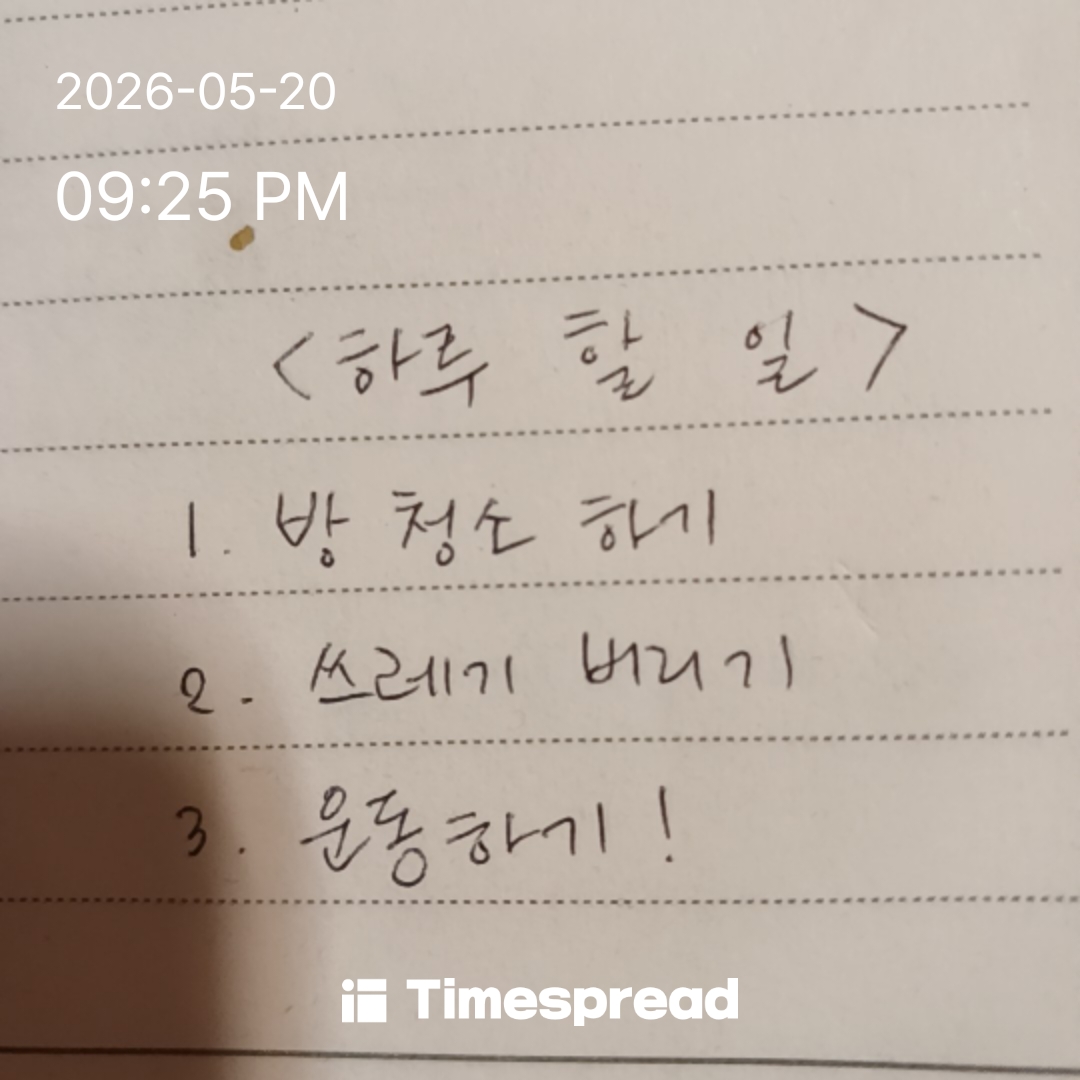 2026-05-20
09:25 PM
<하루 할 일>
1. 방 청소 하기
2. 쓰레기 버리기
3. 운동하기!
Timespread